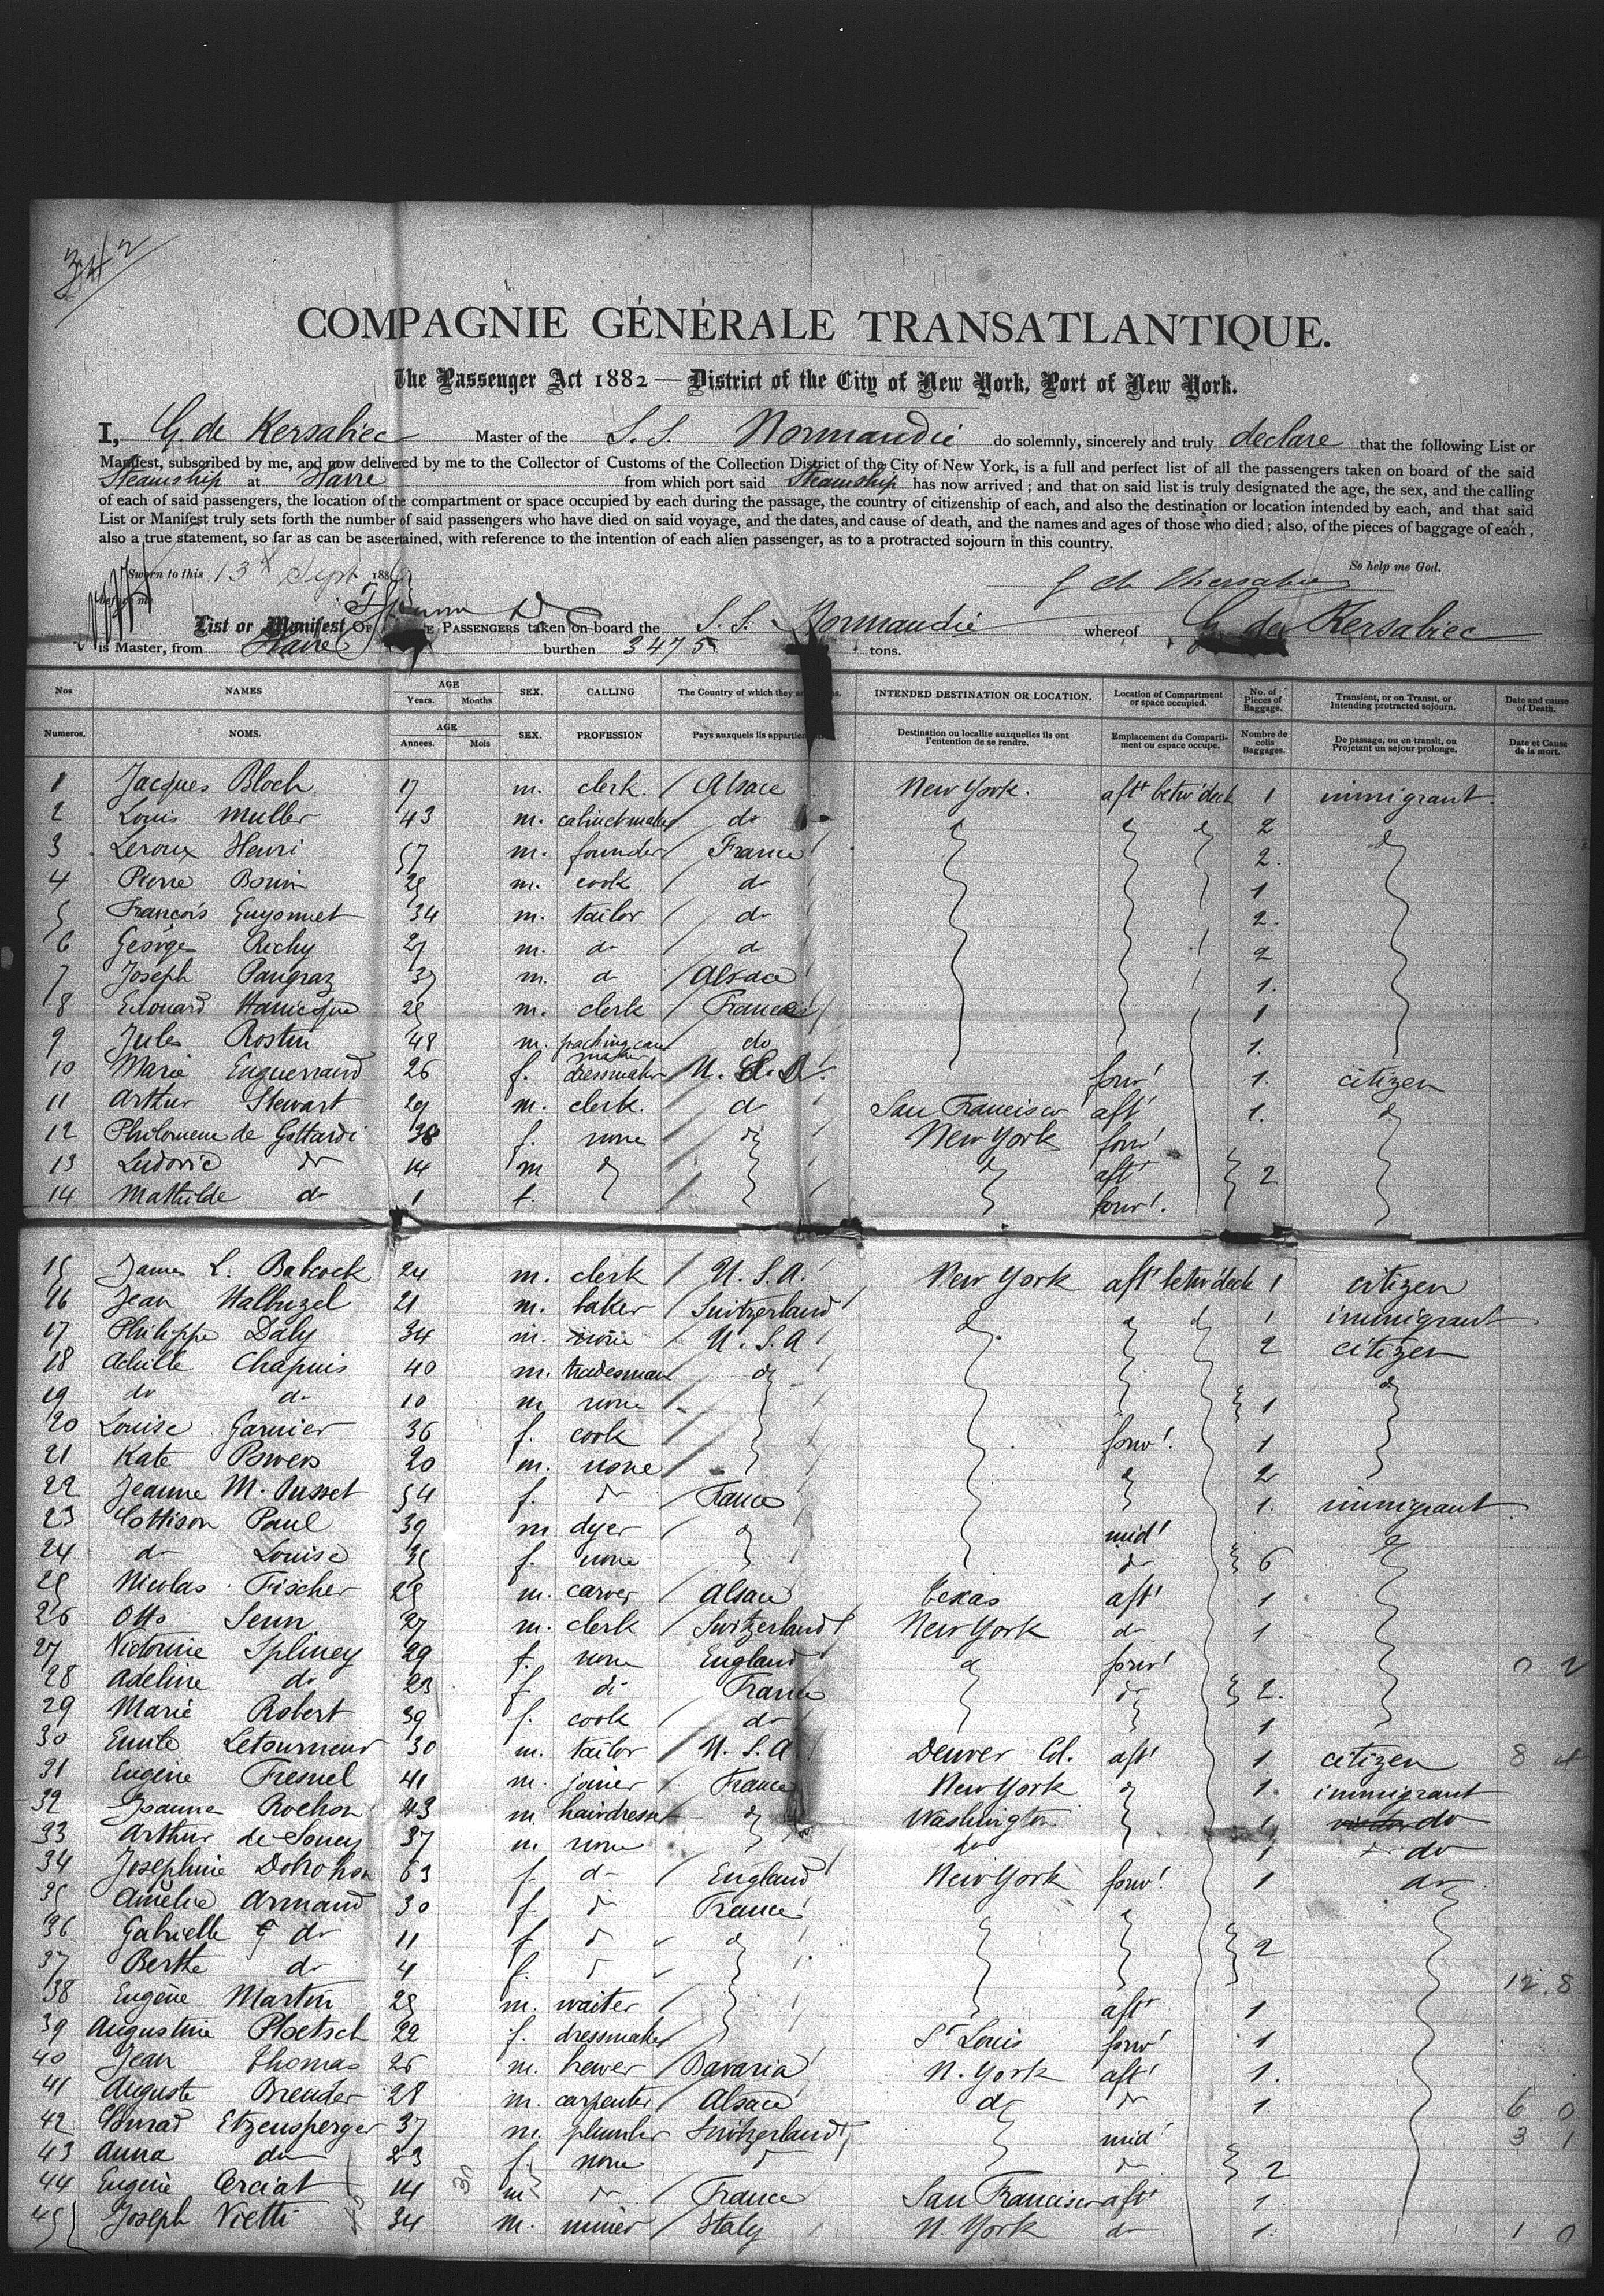 342
COMPAGNIE GÉNÉRALE TRANSATLANTIQUE.
The Passenger Act 1882 — District of the City of New York, Port of New York.
I, G. de Kersabiec Master of the S.S. Normandie do solemnly, sincerely and truly declare that the following List or
Manifest, subscribed by me, and now delivered by me to the Collector of Customs of the Collection District of the City of New York, is a full and perfect list of all the passengers taken on board of the said
Steamship at Havre from which port said Steamship has now arrived; and that on said list is truly designated the age, the sex, and the calling
of each of said passengers, the location of the compartment or space occupied by each during the passage, the country of citizenship of each, and also the destination or location intended by each, and that said
List or Manifest truly sets forth the number of said passengers who have died on said voyage, and the dates, and cause of death, and the names and ages of those who died; also, of the pieces of baggage of each,
also a true statement, so far as can be ascertained, with reference to the intention of each alien passenger, as to a protracted sojourn in this country.
Sworn to this 13th Sept 188 So help me God.
before me G de Kersabiec
List or Manifest OF PASSENGERS taken on board the S.S. Normandie whereof G. de Kersabiec
is Master, from Havre burthen 3475 tons.
Nos NAMES AGE Years. Months SEX. CALLING The Country of which they are INTENDED DESTINATION OR LOCATION. Location of Compartment or space occupied. No. of Pieces of Baggage. Transient, or on Transit, or Intending protracted sojourn. Date and cause of Death.
Numeros. NOMS. AGE Annees. Mois SEX. PROFESSION Pays auxquels ils appartien Destination ou localite auxquelles ils ont l'entention de se rendre. Emplacement du Comparti-ment ou espace occupe. Nombre de colis Baggages. De passage, ou en transit, ou Projetant un sejour prolonge. Date et Cause de la mort.
1 Jacques Bloch 17 m. clerk Alsace New York. aft betw deck 1 immigrant.
2 Louis Muller 43 m. cabinetmaker do 2
3 Leroux Henri 57 m. founder France 2.
4 Pierre Bonin 25 m. cook do 1
5 François Guyonnet 34 m. tailor do 2.
6 George Richy 27 m. do do 2
7 Joseph Pangraz 37 m. do Alsace 1.
8 Edouard Hanicque 25 m. clerk France 1
9 Jules Rostin 48 m. packing case maker do 1.
10 Marie Enguerrand 26 f. dressmaker U.S.A. forw' 1. citizen
11 Arthur Stewart 29 m. clerk. do San Francisco aft 1. do
12 Philomene de Gottardi 38 f. none do New York forw'
13 Ludovic do 14 m do do aft 2
14 Mathilde do 1 f. forw'.
15 James L. Babcock 24 m. clerk U.S.A. New York aft betw deck 1 citizen
16 Jean Halbuzel 21 m. baker Switzerland do do do 1 immigrant.
17 Philippe Daly 34 m. none U.S.A 2 citizen
18 Achille Chapuis 40 m. tradesman do do
19 do do 10 m none 1
20 Louise Garnier 36 f. cook forw'. 1
21 Kate Powers 20 m. none do 2
22 Jeanne M. Pusset 54 f. do France 1. immigrant.
23 Cottison Paul 39 m dyer do mid' do
24 do Louise 35 f. none do 6
25 Nicolas Fischer 25 m. carver Alsace Texas aft' 1
26 Otto Senn 27 m. clerk Switzerland New York do 1
27 Victorine Spliney 29 f. none England do forw' 0 2
28 Adeline do 23 f. do France do 2.
29 Marie Robert 39 f. cook do 1
30 Emile Letourneur 30 m. tailor U.S.A Denver Col. aft' 1 citizen 8 4
31 Eugène Fresnel 41 m. joiner France New York do 1. immigrant
32 Joanna Rochon 43 m. hairdresser do Washington 1. do
33 Arthur de Soucy 37 m none do 1 do
34 Josephine 63 f. do England New York forw'. 1 do
35 Amélie Armand 30 f do France do
36 Gabrielle do 11 f do do 2
37 Berthe do 4 f. do 12.8
38 Eugène Martin 25 m. waiter aft 1
39 Augustine Ploetsch 22 f. dressmaker St Louis forw' 1
40 Jean Thomas 26 m. hewer Bavaria N. York aft' 1.
41 Auguste Breuder 28 m. carpenter Alsace do do 1. 6 0
42 Conrad Etzensperger 37 m. plumber Switzerland mid' 3 1
43 Anna do 23 f. none do do 2
44 Eugène Cerciat 14 m do France San Francisco aft' 1.
45 Joseph Vietti 34 m. miner Italy N. York do 1. 1 0